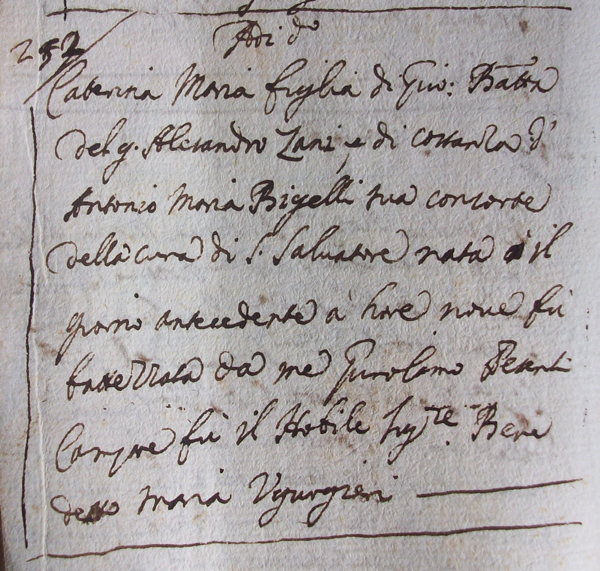 252
Adi d.º
Caterina Maria figlia di Gio: Batta
del q. Alesandro Zani, e di Costanza d'
Antonio Maria Bigelli sua consorte
della cura di S. Salvatore nata il
giorno antecedente à hore nove fù
battezzata da me Girolamo
Compre fù il Nobile Sig.re Bene
detto Maria Ugurgieri